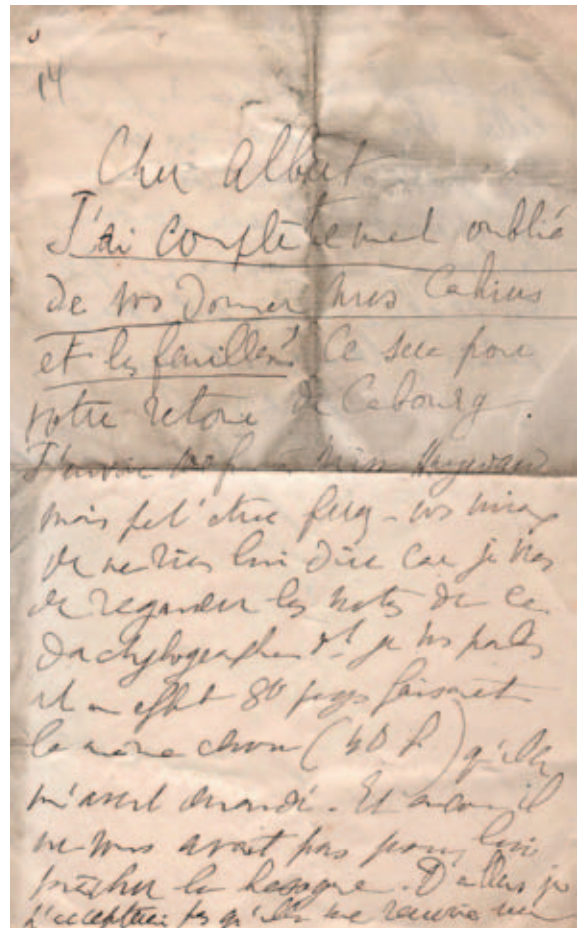 14
Cher Albert
J'ai complètement oublié
de vos donner mes Cahiers
et les feuillets. Ce sera pour
votre retour de Cabourg.
J'avais à Miss Hayward
mais peut'être ferez-vos mieux
de ne rien lui dire car je viens
de regarder les notes de ce
dactylographe dt je vos parlais
et en effet 80 pages faisaient
la même chose (40 f) qu'elle
m'avait demandé. Et encore il
ne vos avait pas pour lui
mâcher la besogne. D'ailleurs je
n'accepterai pas qu'elle me renvoie